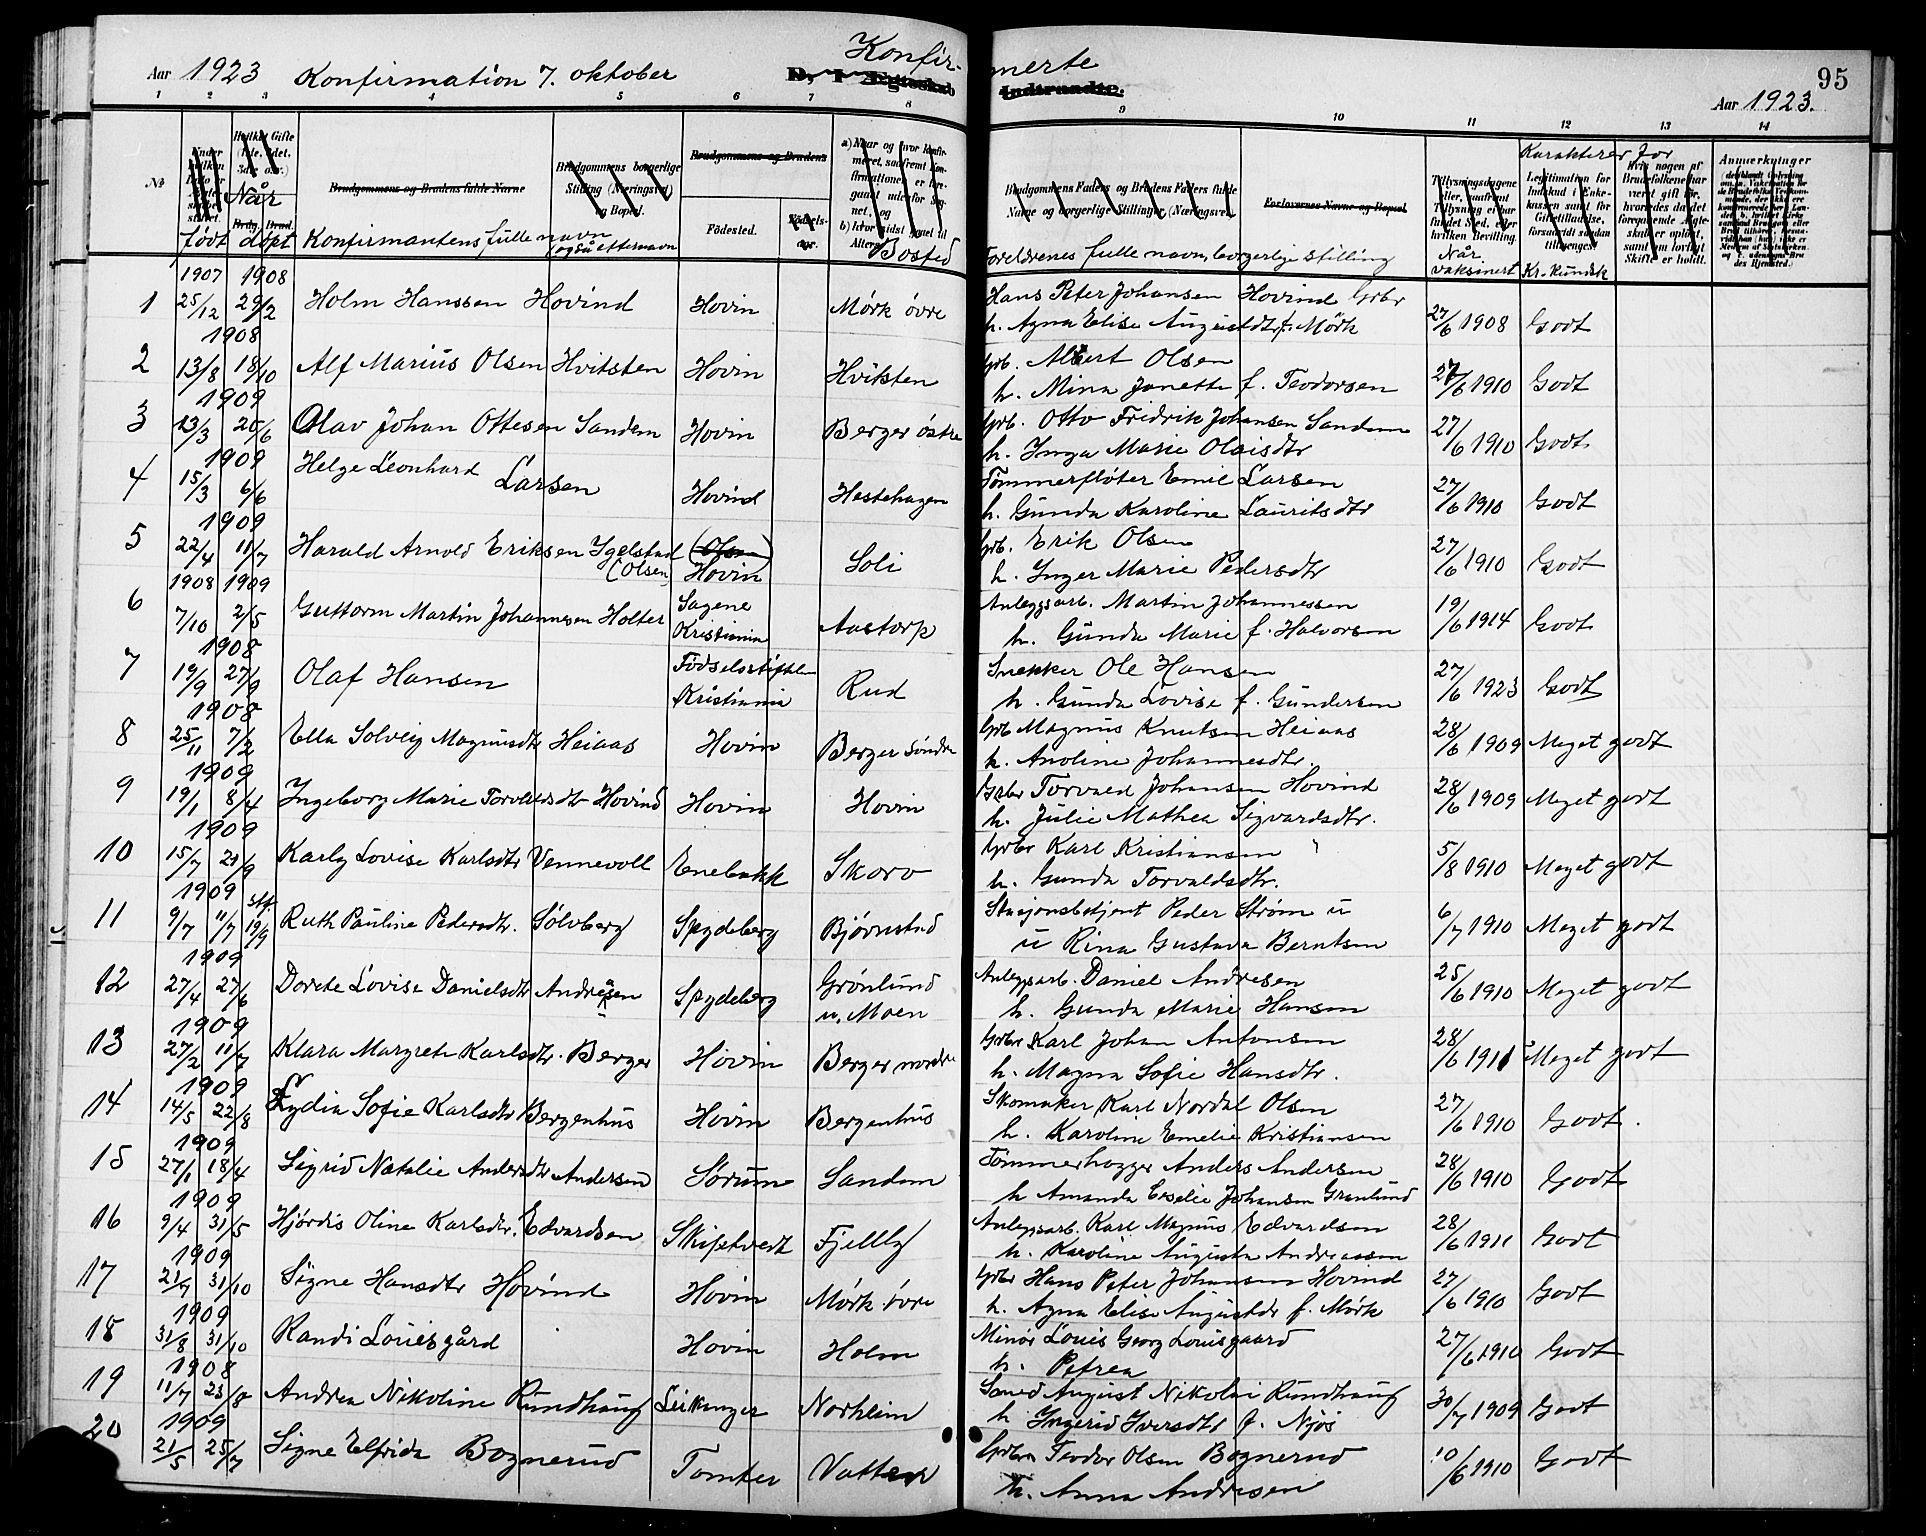 Aar 1923 Konfirmation 7. oktober Konfir-merte 95
Aar 1923.
1 2 3 4 5 6 7 8 9 10 11 12 13 14
No. Når Brudgommens og Brudens fulde Navne Brudgommens borgerlige Stilling (Næringsvei) og Bopæl. Brudgommens og Brudens Fødested. Fødsels-aar. Brudgommens Faders og Brudens Faders fulde Navne og borgerlige Stillinger (Næringsvei) Forlovernes Navne og Bopæl Karakterer for
født døpt Konfirmantens fulle navn også etternavn Bosted Foreldrenes fulle navn, borgerlige stilling Når vaksinert Kr. kundsk
1907 1908
1 25/12 29/2 Holm Hanssen Hovind Hovin Mørk øvre Hans Peter Johansen Hovind Grbr
h. Agna Elise Augustdtr f. Mørk 27/6 1908 Godt
1908
2 13/8 18/10 Alf Marius Olsen Hvitsten Hovin Hvitsten Grb. Albert Olsen
h. Mina Janette f. Teodorsen 27/6 1910 Godt
1909
3 13/3 20/6 Olav Johan Ottesen Sandem Hovin Berger østre Grb. Otto Fridrik Johansen Sandem
h. Inga Marie Olaisdtr 27/6 1910 Godt
1909
4 15/3 6/6 Helge Leonhard Larsen Hovind Hestehagen Tømmerfløter Emil Larsen
h. Gunda Karoline Lauritsdtr 27/6 1910 Godt
1909
5 22/4 11/7 Harald Arnold Eriksen Igelstad (Olsen) (Olsen) Hovin Soli Grb. Erik Olsen
h. Inger Marie Pedersdtr 27/6 1910 Godt
1908 1909
6 7/10 2/5 Guttorm Martin Johannesen Holter Sagene Kristiania Aastorp Anleggsarb. Martin Johannessen
h. Gunda Marie f. Halvorsen 19/6 1914 Godt
1908
7 19/9 27/9 Olaf Hansen Fødselsstiftelsen Kristiania Rud Snekker Ole Hansen
h. Gunda Lovise f. Gundersen 27/6 1923 Godt
1908
8 25/11 7/2 Ella Solveig Magnusdtr Heiaas Hovin Berger søndre Grb Magnus Knutsen Heiaas
h. Anoline Johannesdtr. 28/6 1909 Meget godt
1909
9 19/1 8/4 Ingeborg Marie Torvaldsdtr Hovind Hovin Hovin Grbr Torvald Johansen Hovind
h. Julie Mathea Sigvardsdtr. 28/6 1909 Meget godt
1909
10 15/7 21/9 Karly Lovise Karlsdtr Vennevoll Enebakk Skorv Grbr Karl Kristiansen
h. Gunda Torvaldsdtr. 5/8 1910 Meget godt
1909
11 9/7 11/7 19/9 Ruth Pauline Pedersdtr. Sølvberg Spydeberg Bjørnstad Stasjonsbetjent Peder Strøm u
u Rina Gustava Berntsen 6/7 1910 Meget godt
1909
12 27/4 27/6 Dorete Lovise Danielsdtr Andresen Spydeberg Grønlund u. Moen Anleggsarb. Daniel Andresen
h. Gunda Marie Hansen 25/6 1910 Meget godt
1909
13 27/2 11/7 Klara Margrete Karlsdtr. Berger Hovin Berger nordre Grbr Karl Johan Antonsen
h. Magna Sofie Hansdtr. 28/6 1911 Meget godt
1909
14 14/5 22/8 Lydia Sofie Karlsdtr Bergenhus Hovin Bergenhus Skomaker Karl Nordal Olsen
h. Karoline Emelie Kristiansen 27/6 1910 Godt.
1909
15 27/1 18/4 Sigrid Natalie Andersdtr Andersen Sørum Sandem Tømmerhogger Anders Andersen
h Amanda Eveline Johansen Granlund 28/6 1910 Godt
1909
16 9/4 31/5 Hjørdis Oline Karlsdtr. Edvardsen Skiptvedt Fjellly Anleggsarb. Karl Magnus Edvardsen
h. Karoline Augusta Andreassen 28/6 1911 Godt
1909
17 21/7 31/10 Signe Hansdtr Hovind Hovin Mørk øvre Grbr Hans Peter Johansen Hovind
h. Agna Elise Augustdtr f. Mørk 27/6 1910 Godt
1909
18 31/8 31/10 Randi Louisgård Hovin Holm Minør Louis Georg Louisgaard
h. Petrea 27/6 1910 Godt
1908
19 11/7 23/8 Andrea Nikoline Rundhaug Leikanger Norheim August Nikolai Rundhaug
h Ingerid Iversdtr f. Njøs 30/7 1909 Godt
1909
20 21/5 25/7 Signe Elfrida Bognerud Tomter Vatter Grbr Teodor Olsen Bognerud
h. Anna Andresen 10/6 1910 Godt